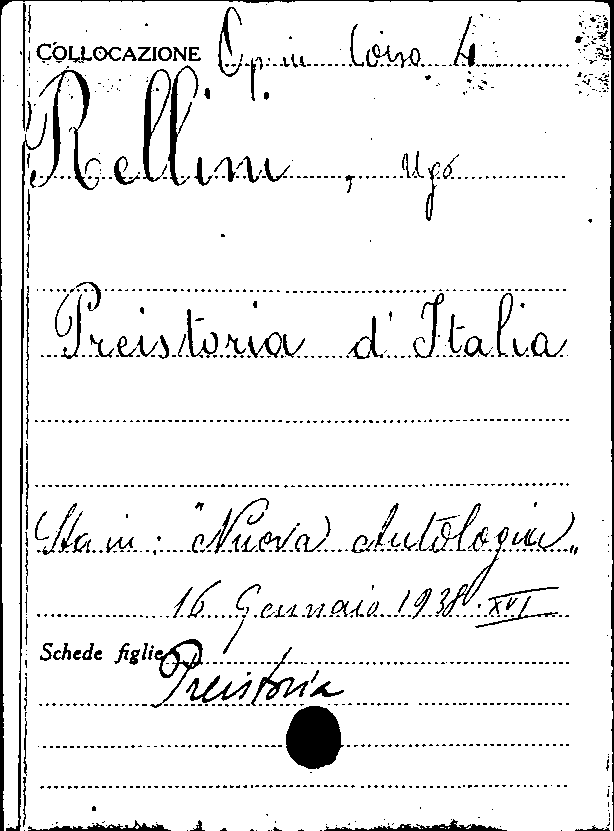 COLLOCAZIONE Op. in Corso 4
Rellini, Ugo
Preistoria d'Italia
Sta in: "Nuova Antologia„
16 Gennaio 1938. XVI
Schede figlie
Preistoria